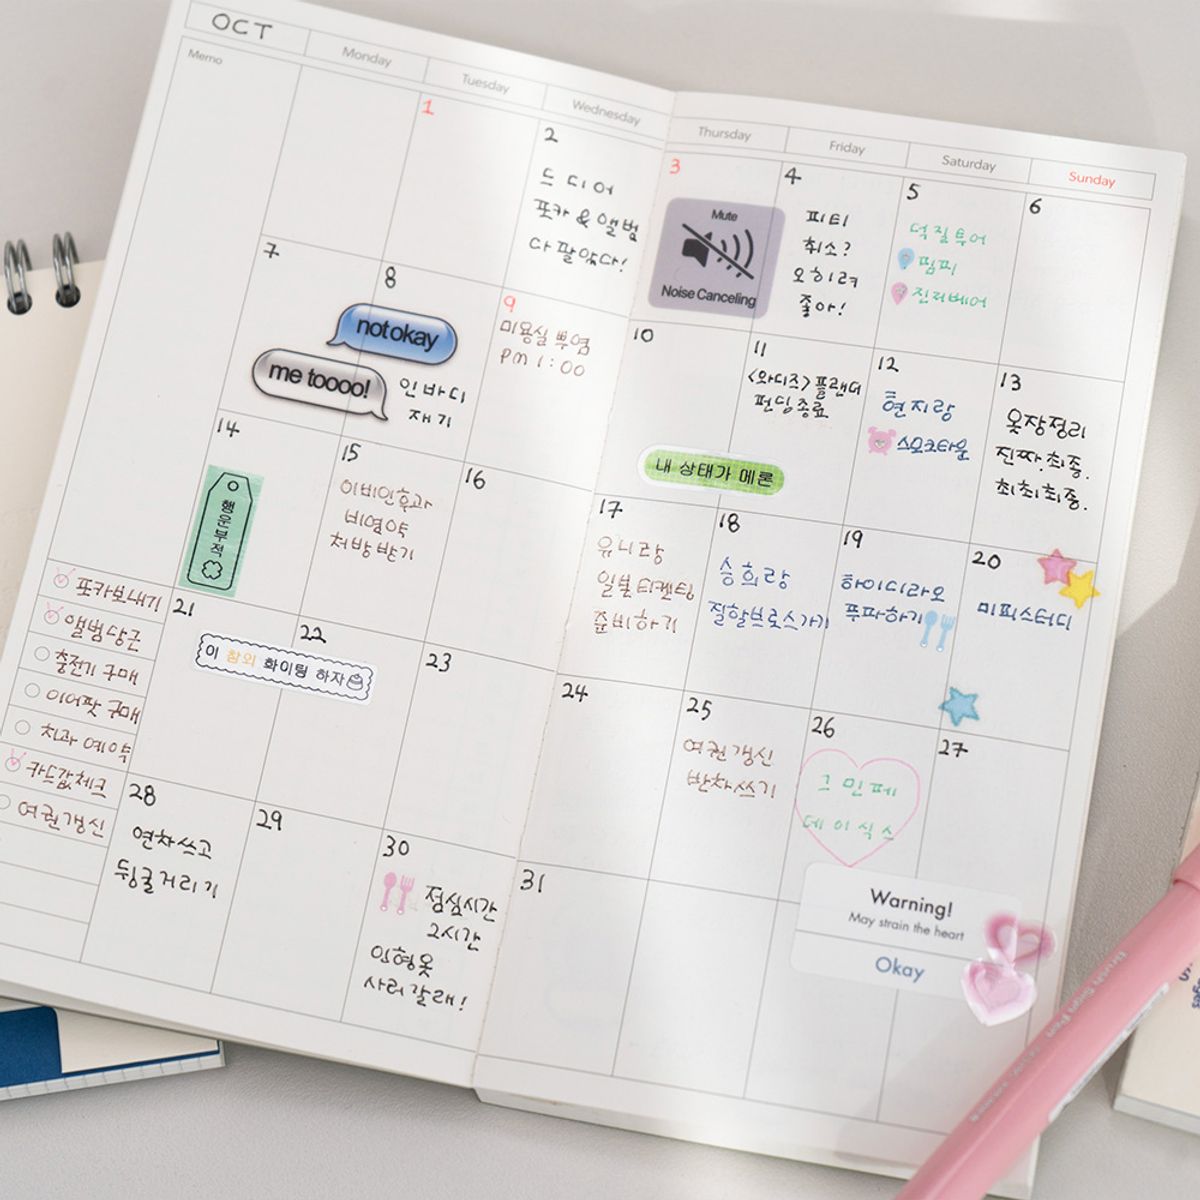 OCT
Monday
Tuesday
Wednesday
Thursday
Friday
Saturday
Sunday
Memo
1
2
드디어
포카 & 앨범
다 팔았다!
3
Mute
Noise Canceling
4
피티
취소?
오히려
좋아!
5
덕질투어
핌피
진저베어
6
7
8
notokay
me toooo!
인바디
재기
9
미용실 뿌염
PM 1:00
10
11
<와디즈> 플랜더
펀딩종료
12
현지랑
스모크타운
13
옷장정리
진짜.최종.
최최최종.
내 상태가 메론
14
행운부적
15
이비인후과
비염약
처방받기
16
17
유니랑
일본티켓팅
준비하기
18
승희랑
질할브로스가기
19
하이디라오
푸파하기
20
미피스터디
21
22
이 참외 화이팅 하자
23
24
25
여권갱신
반차쓰기
26
그민페
데이식스
27
포카보내기
앨범당근
충전기 구매
이어팟 구매
치과 예약
카드값체크
여권갱신
28
연차쓰고
뒹굴거리기
29
30
점심시간
2시간
인형옷
사러갈래!
31
Warning!
May strain the heart
Okay